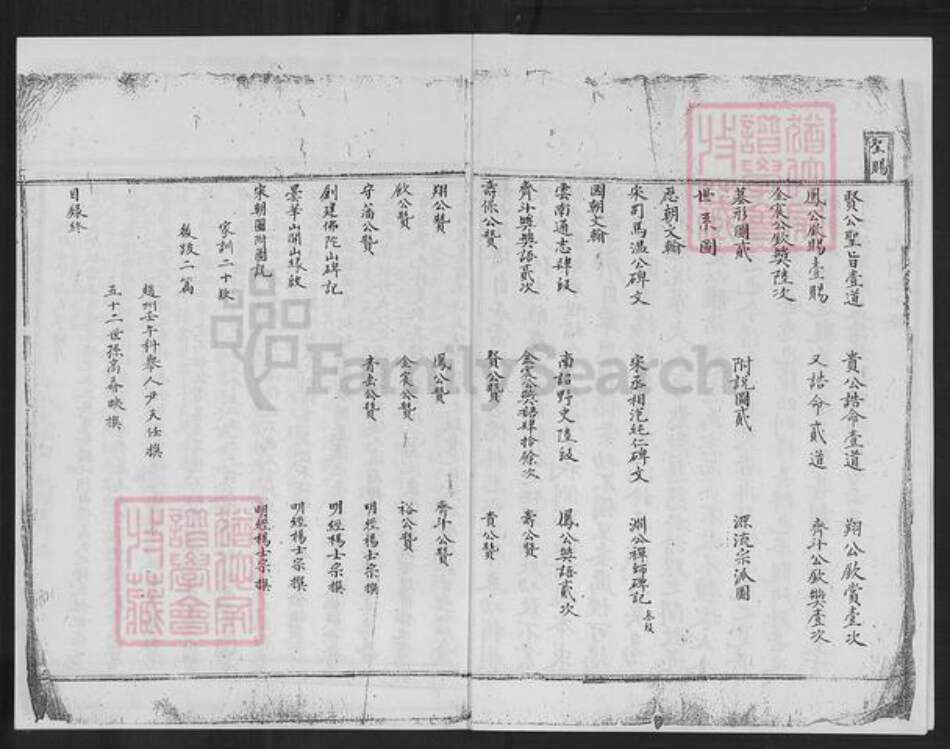 聖賜
賢公聖旨壹道 貴公誥命壹道 翔公欽賞壹次
鳳公欽賜壹賜 又誥命貳道 齊斗公欽奬壹次
金裳公欽奬陸次
墓形圖貳 附説圖貳 源流宗派圖
世系圖
歷朝文翰
宋司馬溫公碑文 宋丞相范純仁碑文 淵公禪師碑記
國朝文翰
雲南通志肆段 南詔野史陸段 鳳公奬語貳次
齊斗奬奬語貳次 金裳公奬語肆拾餘次 壽公贊
壽保公贊 賢公贊 貴公贊
翔公贊 鳳公贊 齊斗公贊
欽公贊 金裳公贊 裕公贊
守藩公贊 青岳公贊 明經楊士宗撰
創建佛陀山碑記 明經楊士宗撰
雲華山開山緣啟 明經楊士宗撰
宋朝圖附圖説 明經楊士宗撰
家訓二十欵
後跋二篇
趙州壬午科舉人尹天任撰
五十二世孫高奣映撰
目錄終
FamilySearch